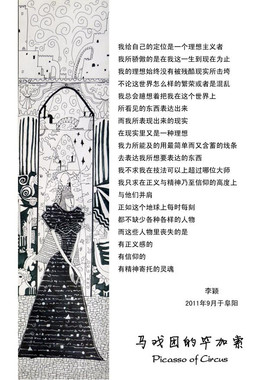 我给自己的定位是一个理想主义者
我所骄傲的是在我这一生到现在为止
我的理想始终没有被残酷现实所击垮
不论这世界怎么样的繁荣或者是混乱
我总会瞳想着把我在这个世界上
所看见的东西表达出来
而我所表现出来的现实
在现实里又是一种理想
我力所能及的用最简单而又含蓄的线条
去表达我所想要表达的东西
我不求我在技法可以上超过哪位大师
我只求在正义与精神乃至信仰的高度上
与他们并肩
正如这个地球上每时每刻
都不缺少各种各样的人物
而这些人物里丧失的是
有正义感的
有信仰的
有精神寄托的灵魂
李颖
2011年9月于阜阳
马戏团的毕加索
Picasso of Circus